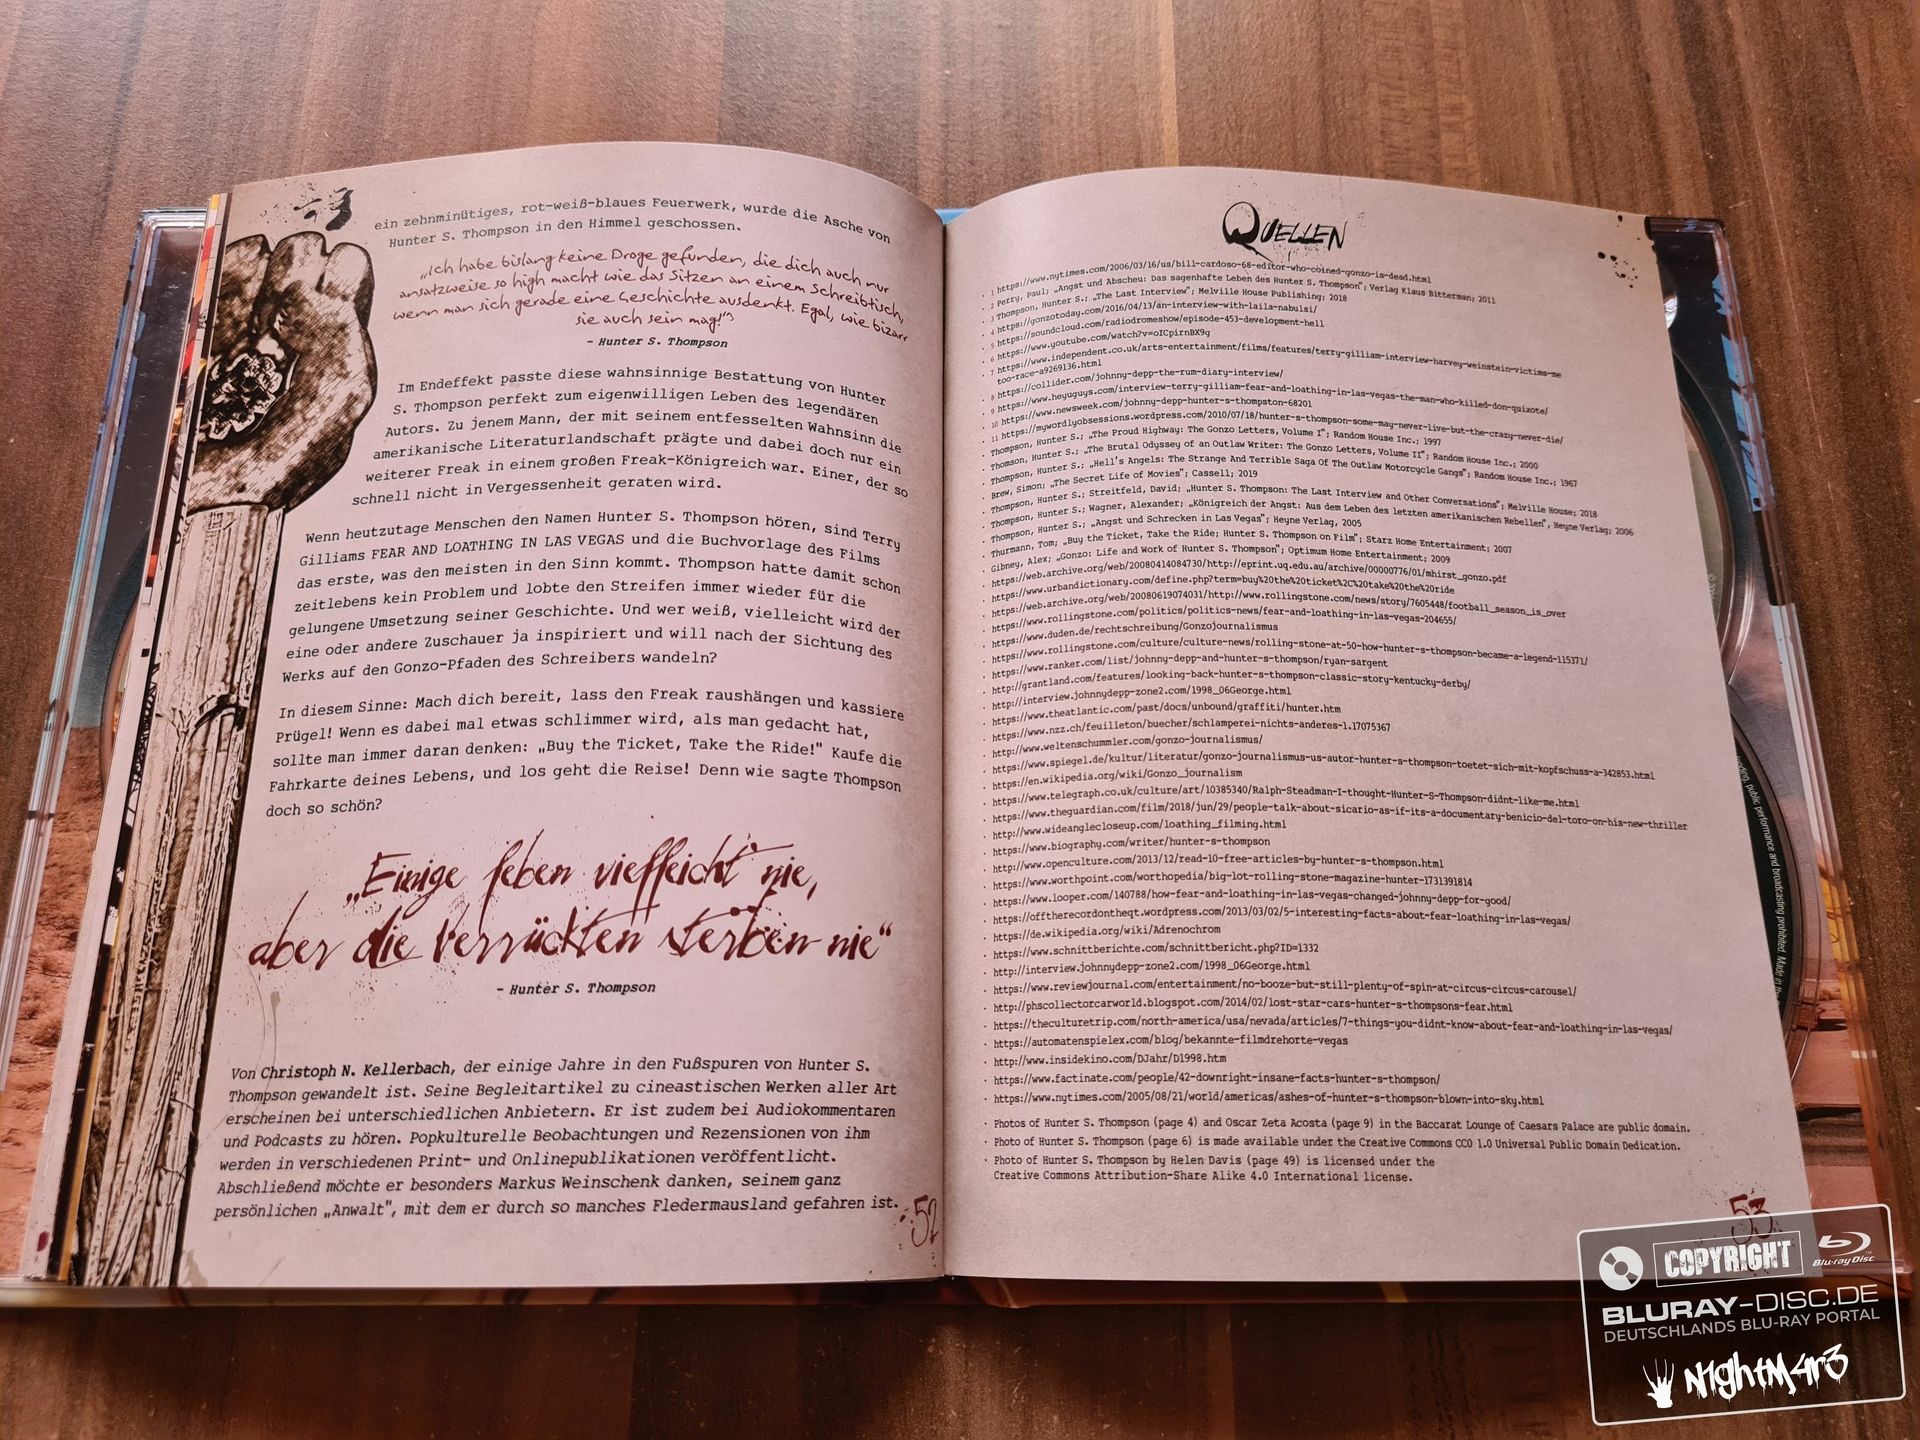 ein zehnminütiges, rot-weiß-blaues Feuerwerk, wurde die Asche von
Hunter S. Thompson in den Himmel geschossen.
„Ich habe bislang keine Droge gefunden, die dich auch nur
ansatzweise so high macht wie das Sitzen an einem Schreibtisch,
wenn man sich gerade eine Geschichte ausdenkt. Egal, wie bizarr
sie auch sein mag!“³
- Hunter S. Thompson
Im Endeffekt passte diese wahnsinnige Bestattung von Hunter
S. Thompson perfekt zum eigenwilligen Leben des legendären
Autors. Zu jenem Mann, der mit seinem entfesselten Wahnsinn die
amerikanische Literaturlandschaft prägte und dabei doch nur ein
weiterer Freak in einem großen Freak-Königreich war. Einer, der so
schnell nicht in Vergessenheit geraten wird.
Wenn heutzutage Menschen den Namen Hunter S. Thompson hören, sind Terry
Gilliams FEAR AND LOATHING IN LAS VEGAS und die Buchvorlage des Films
das erste, was den meisten in den Sinn kommt. Thompson hatte damit schon
zeitlebens kein Problem und lobte den Streifen immer wieder für die
gelungene Umsetzung seiner Geschichte. Und wer weiß, vielleicht wird der
eine oder andere Zuschauer ja inspiriert und will nach der Sichtung des
Werks auf den Gonzo-Pfaden des Schreibers wandeln?
In diesem Sinne: Mach dich bereit, lass den Freak raushängen und kassiere
Prügel! Wenn es dabei mal etwas schlimmer wird, als man gedacht hat,
sollte man immer daran denken: „Buy the Ticket, Take the Ride!" Kaufe die
Fahrkarte deines Lebens, und los geht die Reise! Denn wie sagte Thompson
doch so schön?
„Einige leben vielleicht nie,
aber die Verrückten sterben nie“
- Hunter S. Thompson
Von Christoph N. Kellerbach, der einige Jahre in den Fußspuren von Hunter S.
Thompson gewandelt ist. Seine Begleitartikel zu cineastischen Werken aller Art
erscheinen bei unterschiedlichen Anbietern. Er ist zudem bei Audiokommentaren
und Podcasts zu hören. Popkulturelle Beobachtungen und Rezensionen von ihm
werden in verschiedenen Print- und Onlinepublikationen veröffentlicht.
Abschließend möchte er besonders Markus Weinschenk danken, seinem ganz
persönlichen „Anwalt", mit dem er durch so manches Fledermausland gefahren ist.
52
QUELLEN
1 https://www.nytimes.com/2006/03/16/us/bill-cardoso-68-editor-who-coined-gonzo-is-dead.html
2 Perry, Paul; „Angst und Abscheu: Das sagenhafte Leben des Hunter S. Thompson"; Verlag Klaus Bitterman; 2011
3 Thompson, Hunter S.; „The Last Interview"; Melville House Publishing; 2018
4 https://gonzotoday.com/2016/04/13/an-interview-with-laila-nabulsi/
5 https://soundcloud.com/radiodromeshow/episode-453-development-hell
6 https://www.youtube.com/watch?v=oICpirnBX9g
7 https://www.independent.co.uk/arts-entertainment/films/features/terry-gilliam-interview-harvey-weinstein-victims-me
too-race-a9269136.html
8 https://collider.com/johnny-depp-the-rum-diary-interview/
9 https://www.heyuguys.com/interview-terry-gilliam-fear-and-loathing-in-las-vegas-the-man-who-killed-don-quixote/
10 https://www.newsweek.com/johnny-depp-hunter-s-thompston-68201
11 https://mywordlyobsessions.wordpress.com/2010/07/18/hunter-s-thompson-some-may-never-live-but-the-crazy-never-die/
Thompson, Hunter S.; „The Proud Highway: The Gonzo Letters, Volume I"; Random House Inc.; 1997
Thomson, Hunter S.; „The Brutal Odyssey of an Outlaw Writer: The Gonzo Letters, Volume II"; Random House Inc.; 2000
Thompson, Hunter S.; „Hell's Angels: The Strange And Terrible Saga Of The Outlaw Motorcycle Gangs"; Random House Inc.; 1967
Brew, Simon; „The Secret Life of Movies"; Cassell; 2019
Thompson, Hunter S.; Streitfeld, David; „Hunter S. Thompson: The Last Interview and Other Conversations"; Melville House; 2018
Thompson, Hunter S.; Wagner, Alexander; „Königreich der Angst: Aus dem Leben des letzten amerikanischen Rebellen", Heyne Verlag; 2006
Thompson, Hunter S.; „Angst und Schrecken in Las Vegas"; Heyne Verlag, 2005
Thurmann, Tom; „Buy the Ticket, Take the Ride; Hunter S. Thompson on Film"; Starz Home Entertainment; 2007
Gibney, Alex; „Gonzo: Life and Work of Hunter S. Thompson"; Optimum Home Entertainment; 2009
https://web.archive.org/web/20080414084730/http://eprint.uq.edu.au/archive/00000776/01/mhirst_gonzo.pdf
https://www.urbandictionary.com/define.php?term=buy%20the%20ticket%2C%20take%20the%20ride
https://web.archive.org/web/20080619074031/http://www.rollingstone.com/news/story/7605448/football_season_is_over
https://www.rollingstone.com/politics/politics-news/fear-and-loathing-in-las-vegas-204655/
https://www.duden.de/rechtschreibung/Gonzojournalismus
https://www.rollingstone.com/culture/culture-news/rolling-stone-at-50-how-hunter-s-thompson-became-a-legend-115371/
https://www.ranker.com/list/johnny-depp-and-hunter-s-thompson/ryan-sargent
http://grantland.com/features/looking-back-hunter-s-thompson-classic-story-kentucky-derby/
http://interview.johnnydepp-zone2.com/1998_06George.html
https://www.theatlantic.com/past/docs/unbound/graffiti/hunter.htm
https://www.nzz.ch/feuilleton/buecher/schlamperei-nichts-anderes-1.17075367
http://www.weltenschummler.com/gonzo-journalismus/
https://www.spiegel.de/kultur/literatur/gonzo-journalismus-us-autor-hunter-s-thompson-toetet-sich-mit-kopfschuss-a-342853.html
https://en.wikipedia.org/wiki/Gonzo_journalism
https://www.telegraph.co.uk/culture/art/10385340/Ralph-Steadman-I-thought-Hunter-S-Thompson-didnt-like-me.html
https://www.theguardian.com/film/2018/jun/29/people-talk-about-sicario-as-if-its-a-documentary-benicio-del-toro-on-his-new-thriller
http://www.wideanglecloseup.com/loathing_filming.html
https://www.biography.com/writer/hunter-s-thompson
http://www.openculture.com/2013/12/read-10-free-articles-by-hunter-s-thompson.html
https://www.worthpoint.com/worthopedia/big-lot-rolling-stone-magazine-hunter-1731391814
https://www.looper.com/140788/how-fear-and-loathing-in-las-vegas-changed-johnny-depp-for-good/
https://offtherecordontheqt.wordpress.com/2013/03/02/5-interesting-facts-about-fear-loathing-in-las-vegas/
https://de.wikipedia.org/wiki/Adrenochrom
https://www.schnittberichte.com/schnittbericht.php?ID=1332
http://interview.johnnydepp-zone2.com/1998_06George.html
https://www.reviewjournal.com/entertainment/no-booze-but-still-plenty-of-spin-at-circus-circus-carousel/
http://phscollectorcarworld.blogspot.com/2014/02/lost-star-cars-hunter-s-thompsons-fear.html
https://theculturetrip.com/north-america/usa/nevada/articles/7-things-you-didnt-know-about-fear-and-loathing-in-las-vegas/
https://automatenspielex.com/blog/bekannte-filmdrehorte-vegas
http://www.insidekino.com/DJahr/D1998.htm
https://www.factinate.com/people/42-downright-insane-facts-hunter-s-thompson/
https://www.nytimes.com/2005/08/21/world/americas/ashes-of-hunter-s-thompson-blown-into-sky.html
Photos of Hunter S. Thompson (page 4) and Oscar Zeta Acosta (page 9) in the Baccarat Lounge of Caesars Palace are public domain.
Photo of Hunter S. Thompson (page 6) is made available under the Creative Commons CC0 1.0 Universal Public Domain Dedication.
Photo of Hunter S. Thompson by Helen Davis (page 49) is licensed under the
Creative Commons Attribution-Share Alike 4.0 International license.
53
public performance and broadcasting prohibited. Made in
COPYRIGHT
Blu-ray Disc
BLURAY-DISC.DE
DEUTSCHLANDS BLU-RAY PORTAL
N1ghtM4r3